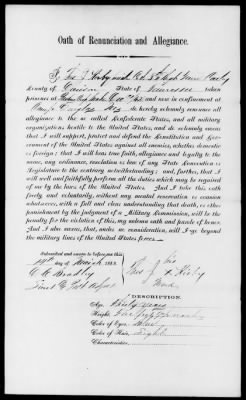 Oath of Renunciation and Allegiance.
I, Thos J. Kirby
County of State of Tennessee taken
prisoner at and now in confinement at
Camp Douglas do hereby solemnly renounce all
allegiance to the so called Confederate States, and all military
organizations hostile to the United States, and do solemnly swear
that I will support, protect and defend the Constitution and Gov-
ernment of the United States against all enemies, whether domestic
or foreign; that I will bear true faith, allegiance and loyalty to the
same, any ordinance, resolution or law of any State Convention or
Legislature to the contrary notwithstanding; and, further, that I
will well and faithfully perform all the duties which may be required
of me by the laws of the United States. And I take this oath
freely and voluntarily, without any mental reservation or evasion
whatsoever, with a full and clear understanding that death, or other
punishment by the judgment of a Military Commission, will be the
penalty for the violation of this, my solemn oath and parole of honor.
And I also swear, that, under no consideration, will I go beyond
the military lines of the United States forces.
Subscribed and sworn to before me this
day of March 1863.
his
Thos J. x Kirby
mark
DESCRIPTION.
Age,
Height, Five
Color of Eyes, Blue
Color of Hair,
Characteristics,